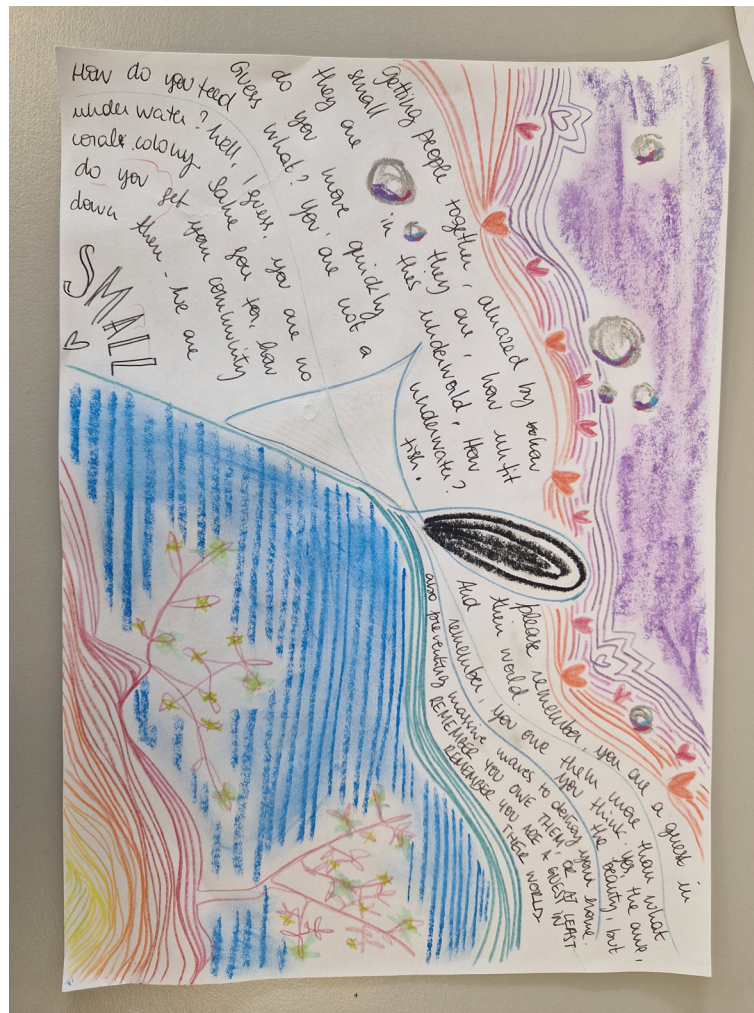 Getting people together, amazed by how
small they are, how unfit
they are in this underworld. How
do you move quickly underwater?
Guess what? You are not a fish.
How do you feed
under water? Well, I guess, you are no
coral colony. Same for you too, how
do you get your community
down there - we are
SMALL
please remember, you are a guest in
their world.
And remember, you owe them more than what
you think. Yes, the awe,
the beauty, but
also preventing massive waves to destroy your home.
REMEMBER YOU OWE THEM, OR AT LEAST
REMEMBER YOU ARE A GUEST IN
THEIR WORLD.